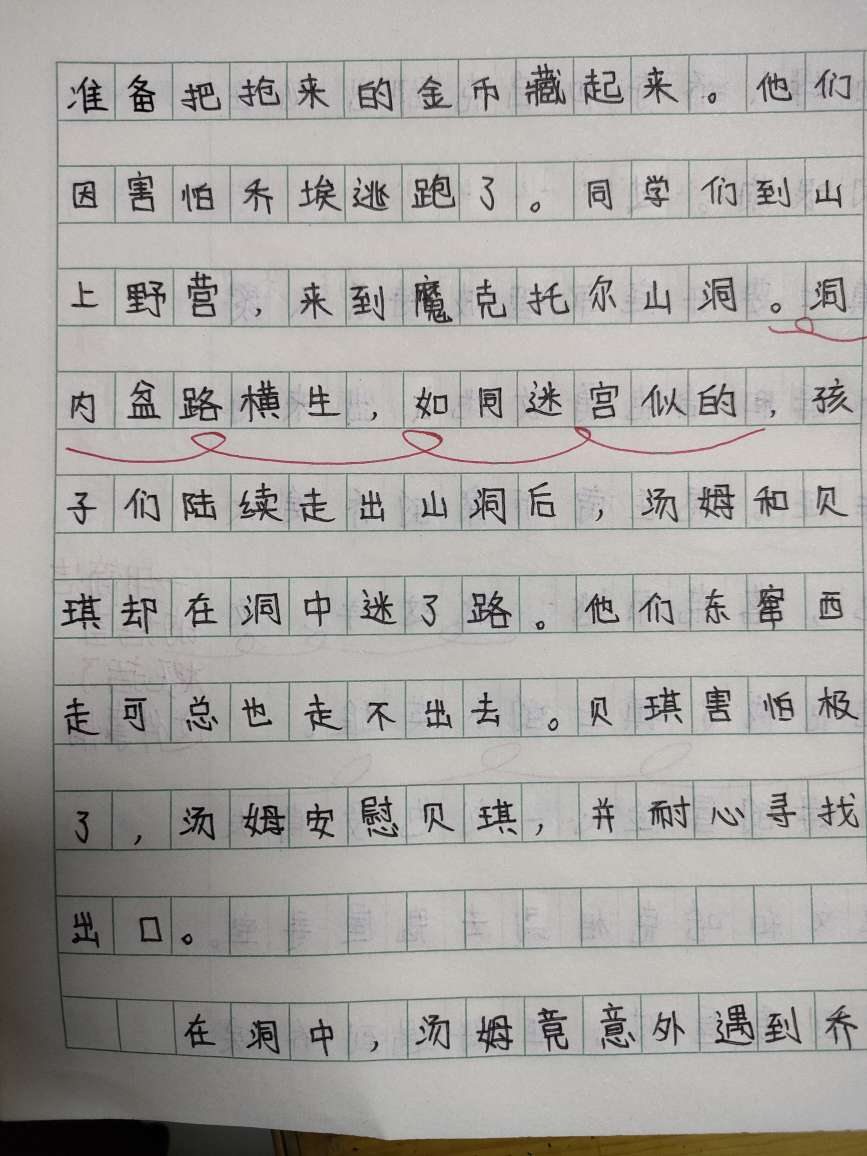 准备把抢来的金币藏起来。他们
因害怕乔埃逃跑了。同学们到山
上野营，来到魔克托尔山洞。洞
内盆路横生，如同迷宫似的，孩
子们陆续走出山洞后，汤姆和贝
琪却在洞中迷了路。他们东窜西
走可总也走不出去。贝琪害怕极
了，汤姆安慰贝琪，并耐心寻找
出口。
在洞中，汤姆竟意外遇到乔